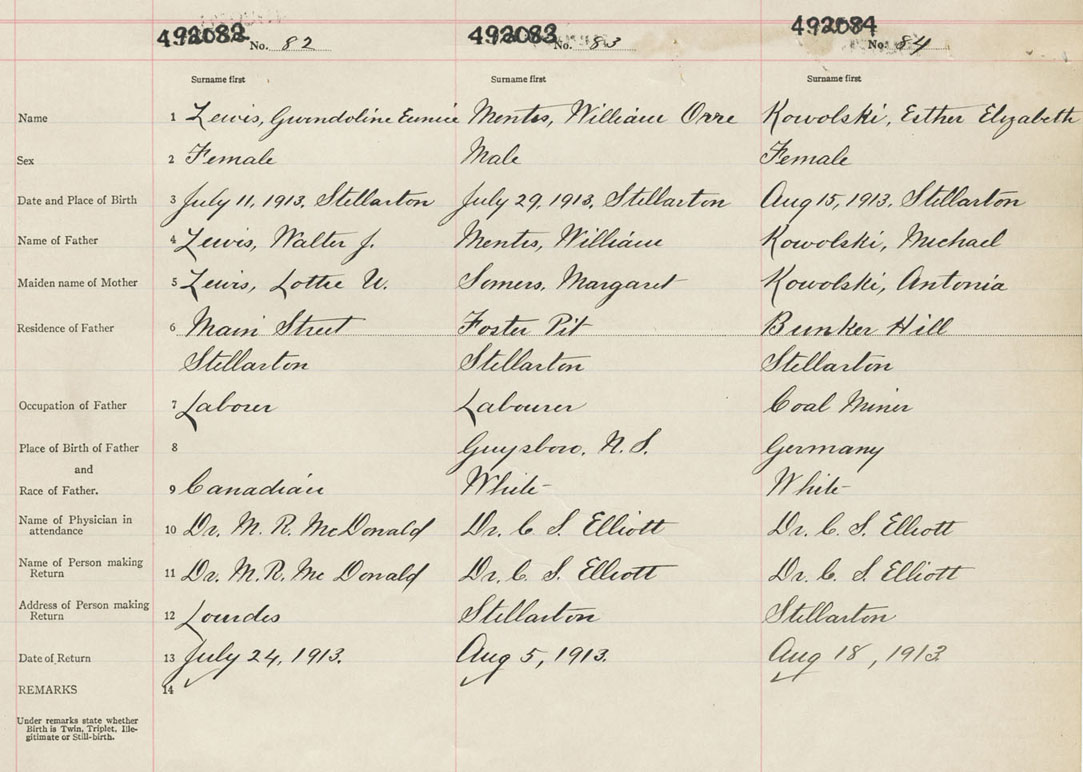 492082 No. 82 492083 No. 83 492084 No. 84
Surname first Surname first Surname first
Name 1 Lewis, Gwendoline Eunice Mentis, William Orre Kowolski, Esther Elizabeth
Sex 2 Female Male Female
Date and Place of Birth 3 July 11, 1913, Stellarton July 29, 1913, Stellarton Aug 15, 1913, Stellarton
Name of Father 4 Lewis, Walter J. Mentis, William Kowolski, Michael
Maiden name of Mother 5 Lewis, Lottie U. Somers, Margaret Kowolski, Antonia
Residence of Father 6 Main Street Foster Pit Bunker Hill
Stellarton Stellarton Stellarton
Occupation of Father 7 Laborer Labourer Coal Miner
Place of Birth of Father 8 Guysboro, N.S. Germany
and
Race of Father. 9 Canadian White White
Name of Physician in
attendance 10 Dr. M. R. McDonald Dr. C. S. Elliott Dr. C. S. Elliott
Name of Person making
Return 11 Dr. M. R. McDonald Dr. C. S. Elliott Dr. C. S. Elliott
Address of Person making
Return 12 Lourdes Stellarton Stellarton
Date of Return 13 July 24, 1913. Aug 5, 1913. Aug 18, 1913
REMARKS 14
Under remarks state whether
Birth is Twin, Triplet, Ille-
gitimate or Still-birth.